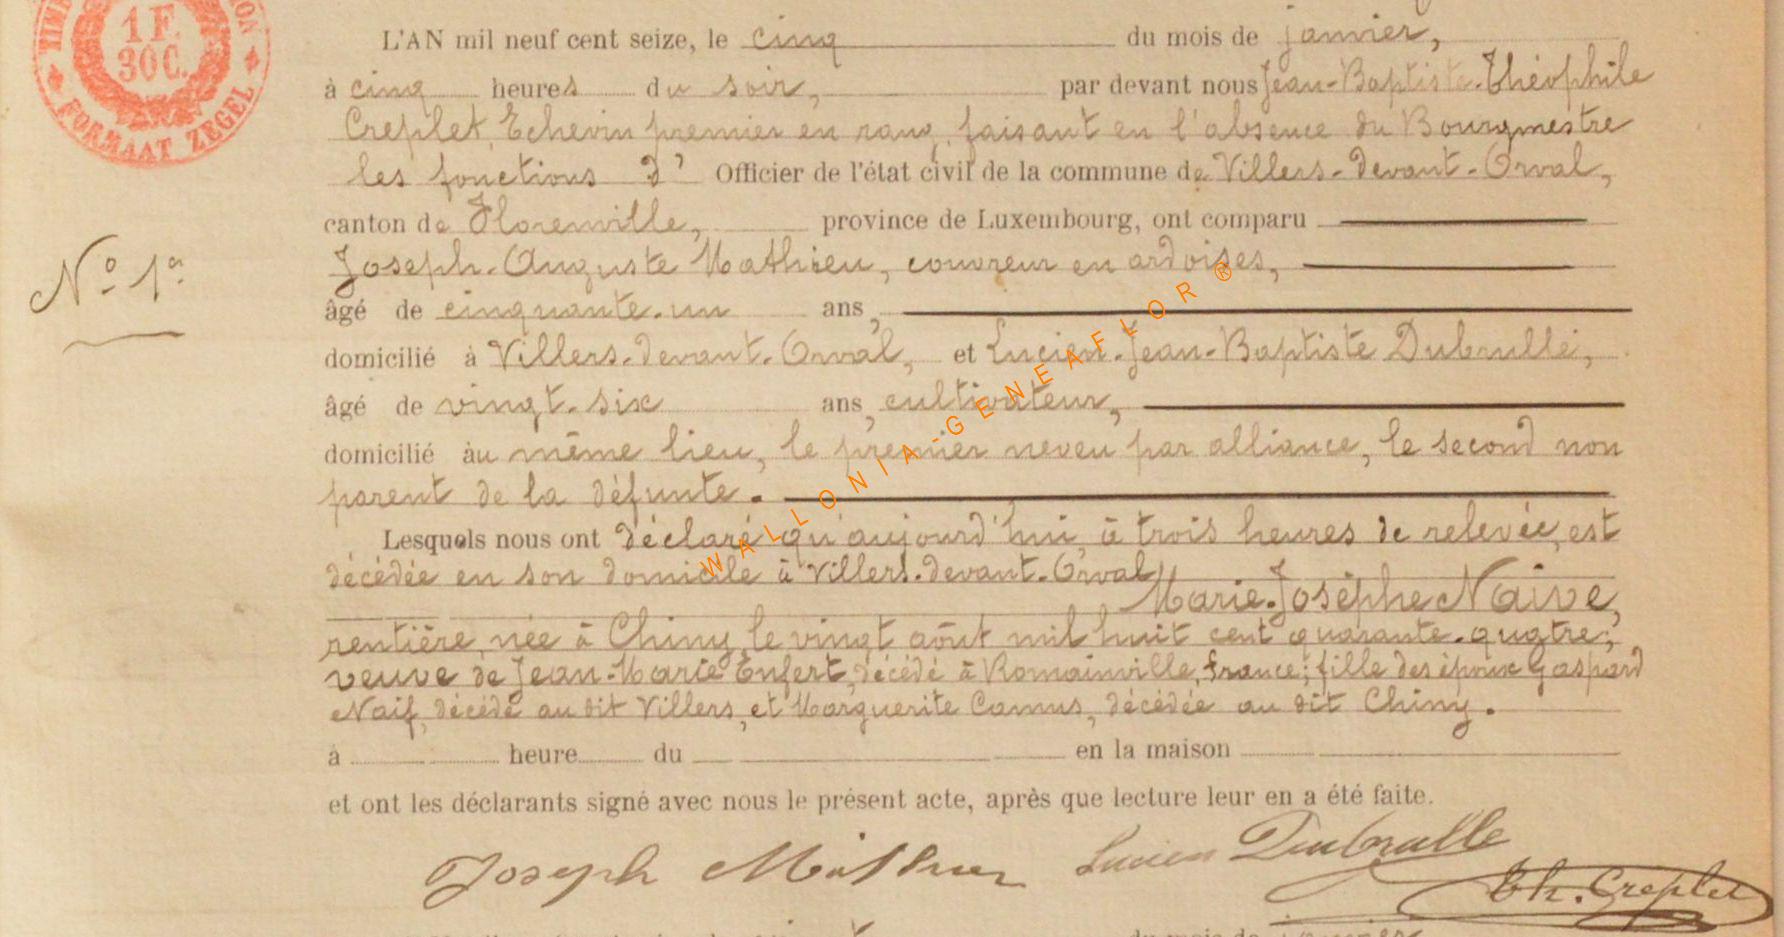 1 F.
30 C.
FORMAAT ZEGEL
L'AN mil neuf cent seize, le cinq du mois de janvier,
à cinq heures du soir, par devant nous Jean-Baptiste-Théophile
Creplet, Echevin premier en rang, faisant en l'absence du Bourgmestre
les fonctions d' Officier de l'état civil de la commune de Villers-devant-Orval,
canton de Florenville, province de Luxembourg, ont comparu
Nº 1er
Joseph-Auguste Mathieu, couvreur en ardoises,
âgé de cinquante-un ans,
domicilié à Villers-devant-Orval, et Lucien-Jean-Baptiste Dubrulle,
âgé de vingt-six ans, cultivateur,
domicilié au même lieu, le premier neveu par alliance, le second non
parent de la défunte.
Lesquels nous ont déclaré qu'aujourd'hui, à trois heures de relevée, est
décédée en son domicile à Villers-devant-Orval
Marie-Josèphe Naive,
rentière, née à Chiny, le vingt août mil huit cent quarante-quatre;
veuve de Jean-Marie Enfert, décédé à Romainville, France; fille des époux Gaspard
Naif, décédé au dit Villers, et Marguerite Camus, décédée au dit Chiny.
à heure du en la maison
et ont les déclarants signé avec nous le présent acte, après que lecture leur en a été faite.
Joseph Mathieu Lucien Dubrulle
Th. Creplet
WALLONIA-GENEAFLOR ®